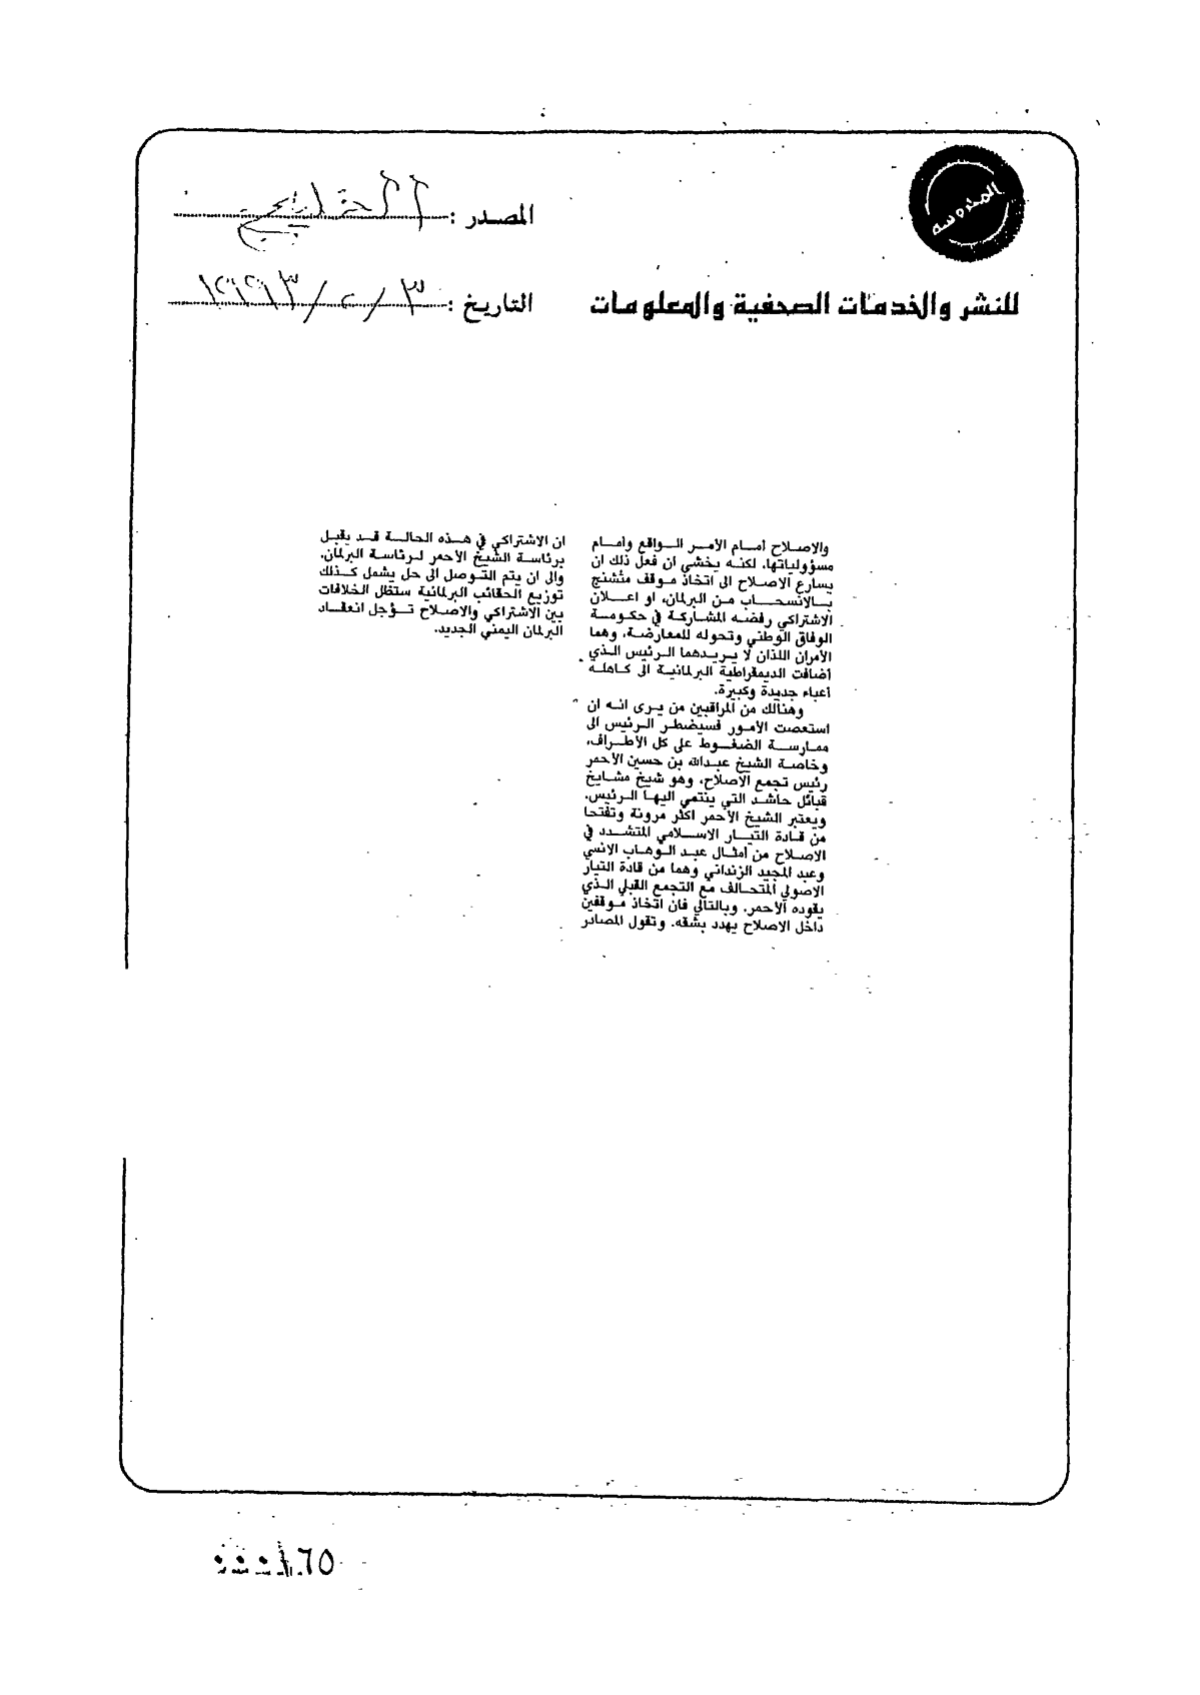 المحروسة
المصدر : الخليج
للنشر والخدمات الصحفية والمعلومات
التاريخ : ٣ / ٥ / ١٩٩٣
والاصلاح أمام الأمر الواقع وأمام
مسؤولياتها، لكنه يخشى ان فعل ذلك ان
يسارع الاصلاح الى اتخاذ موقف متشنج
بالانسحاب من البرلمان، او اعلان
الاشتراكي رفضه المشاركة في حكومة
الوفاق الوطني وتحوله للمعارضة، وهما
الأمران اللذان لا يريدهما الرئيس الذي
أضافت الديمقراطية البرلمانية الى كاهله
أعباء جديدة وكبيرة.
وهنالك من المراقبين من يرى انه ان
استعصت الأمور فسيضطر الرئيس الى
ممارسة الضغوط على كل الأطراف،
وخاصة الشيخ عبدالله بن حسين الأحمر
رئيس تجمع الاصلاح، وهو شيخ مشايخ
قبائل حاشد التي ينتمي اليها الرئيس.
ويعتبر الشيخ الأحمر اكثر مرونة وتفتحا
من قادة التيار الاسلامي المتشدد في
الاصلاح من أمثال عبد الوهاب الانسي
وعبد المجيد الزنداني وهما من قادة التيار
الاصولي المتحالف مع التجمع القبلي الذي
يقوده الأحمر. وبالتالي فان اتخاذ موقفين
داخل الاصلاح يهدد بشقه. وتقول المصادر
ان الاشتراكي في هذه الحالة قد يقبل
برئاسة الشيخ الأحمر لرئاسة البرلمان.
والى ان يتم التوصل الى حل يشمل كذلك
توزيع الحقائب البرلمانية ستظل الخلافات
بين الاشتراكي والاصلاح تؤجل انعقاد
البرلمان اليمني الجديد.